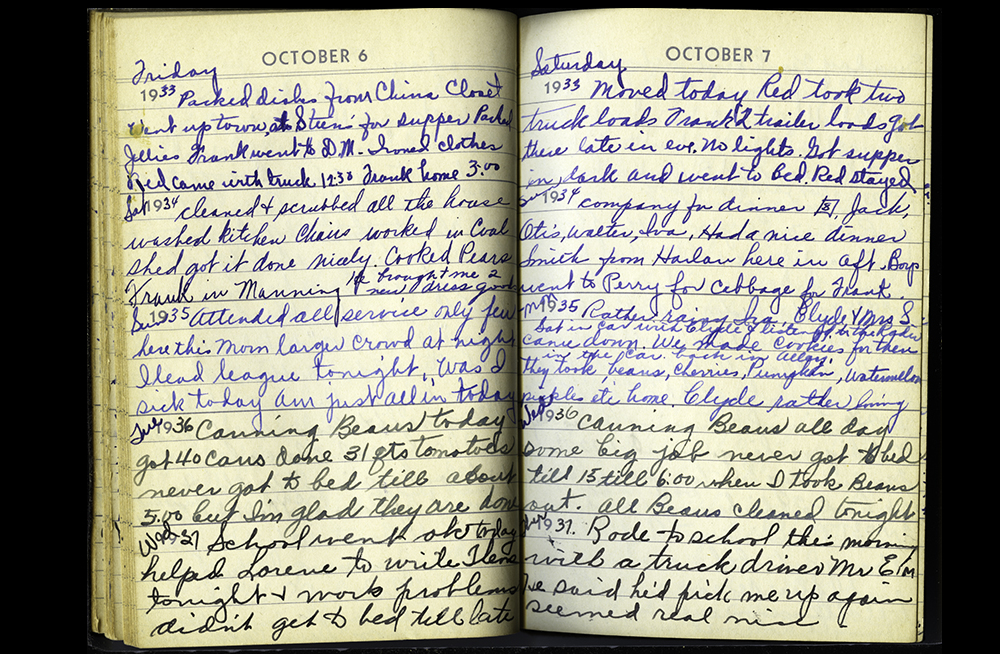 OCTOBER 6
Friday
1933 Packed dishes from China Closet
Went up town, at Steens for supper Packed
Jellies Frank went to D.M. Ironed clothes
Red came with truck 12:30 Frank home 3.00
Sat 1934 cleaned & scrubbed all the house
washed kitchen Chairs worked in Coal
shed got it done nicely. Cooked Pears
Frank in Manning He brought me 2
new dress goods
Sun 1935 Attended all service only few
here this morn larger crowd at night
I lead league tonight, Was I
sick today am just all in today
Tue 1936 Canning Beans today
got 40 cans done 31 qts tomatoes
never got to bed till about
5.00 but I'm glad they are done
Wed 1937 School went ok today
helped Lorene to write Items
tonight & work problems
didn't get to bed till late
OCTOBER 7
Saturday
1933 Moved today Red took two
truck loads Frank 2 trailer loads got
there late in eve. No lights. Got supper
in dark and went to bed. Red stayed
Sun 1934 company for dinner Jack,
Otis, Walter, Iva, Had a nice dinner
Smith from Harlan here in aft. Boys
went to Perry for cebbage for Frank.
Mon 1935 Rather rainy Iva Clyde & Mrs S.
Sat in car with Clyde & listened to the Radio
came down. We made cookies for them
in the car back in alley,
they took beans, Cherries, Pumpkin, Watermelon
pickles etc home. Clyde rather
Wed 1936 Canning Beans all day
some big job never got to bed
till 15 till 6:00 when I took Beans
out. All Beans cleaned tonight
1937. Rode to school this morning
with a truck driver Mr Elm
He said he'd pick me up again
seemed real nice